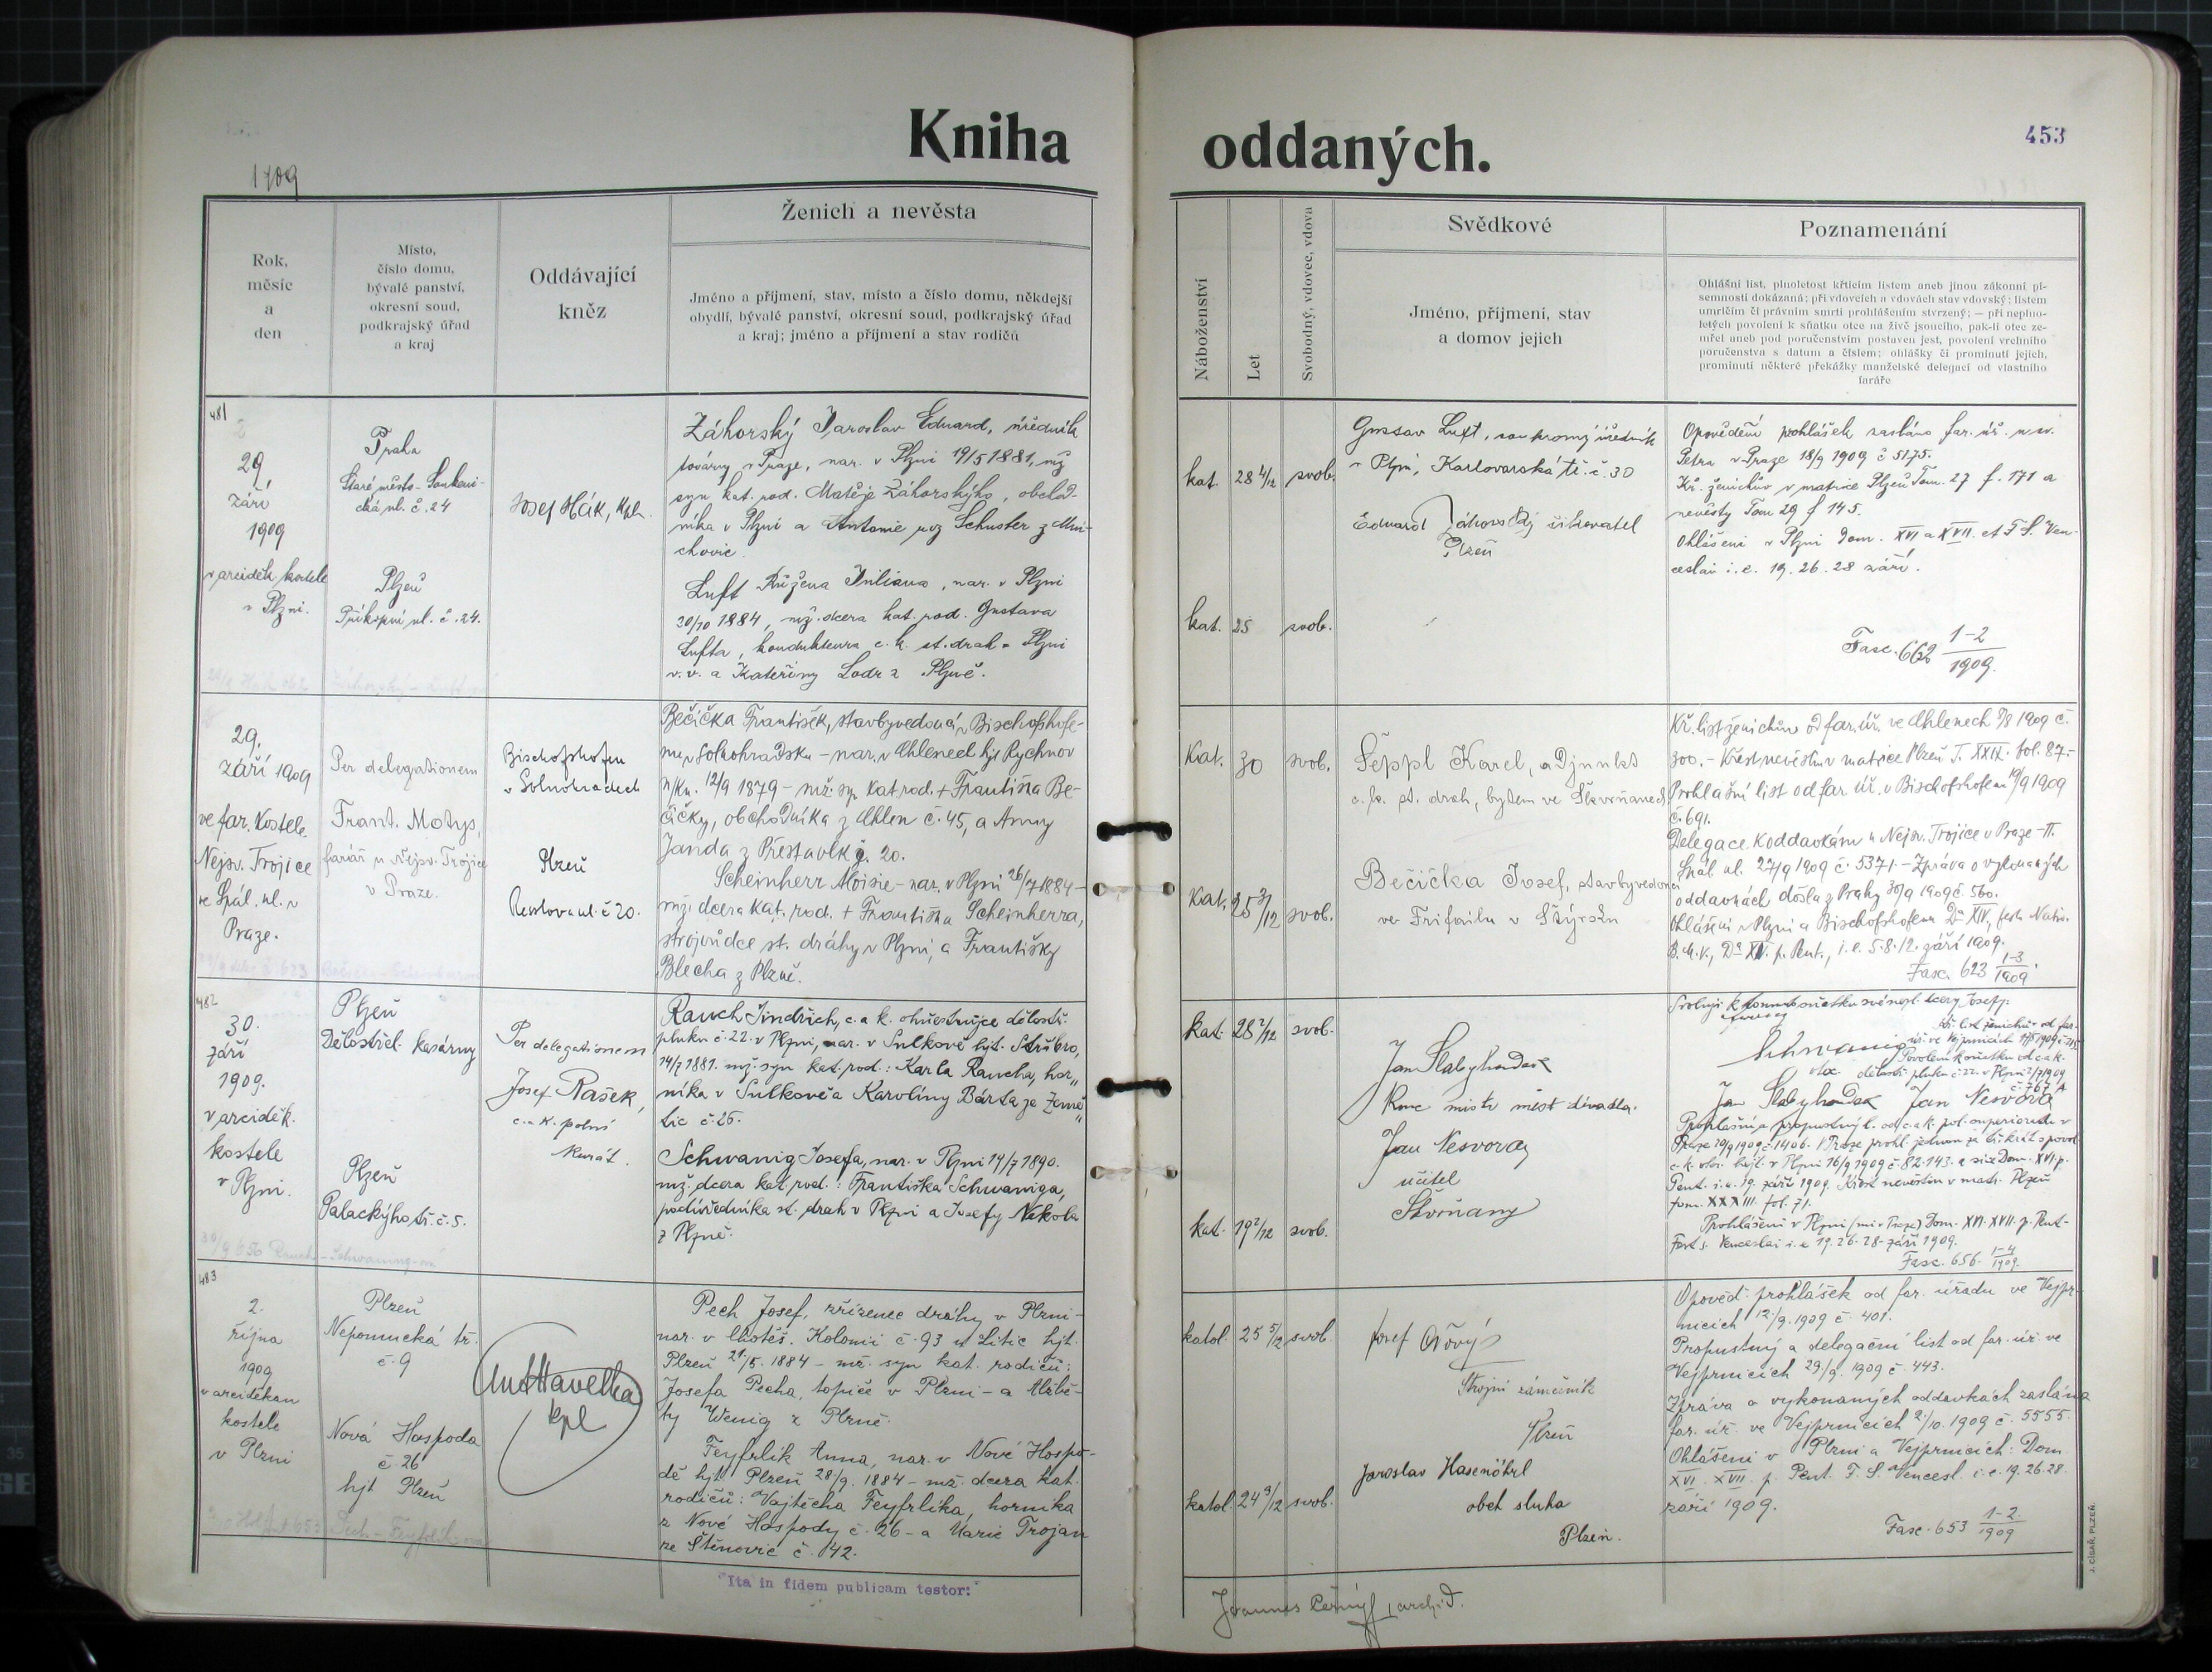 Kniha oddaných.
453
1909
Rok,
měsíc
a
den
Místo,
číslo domu,
bývalé panství,
okresní soud,
podkrajský úřad
a kraj
Oddávající
kněz
Ženich a nevěsta
Jméno a příjmení, stav, místo a číslo domu, někdejší
obydlí, bývalé panství, okresní soud, podkrajský úřad
a kraj; jméno a příjmení a stav rodičů
Náboženství
Let
Svobodný, vdovec, vdova
Svědkové
Jméno, příjmení, stav
a domov jejich
Poznamenání
Ohlášní list, plnoletost křticím listem aneb jinou zákonní pí-
semností dokázaná; při vdovcích a vdovách stav vdovský; listem
umrlčím či právním smrti prohlášením stvrzený; — při neplno-
letých povolení k sňatku otce na živě jsoucího, pak-li otec ze-
mřel aneb pod poručenstvím postaven jest, povolení vrchního
poručenstva s datum a číslem; ohlášky či prominutí jejich,
prominutí některé překážky manželské delegací od vlastního
faráře
481
29
září
1909
v arciděk. kostele
v Plzni.
Praha
Staré město - Soukeni-
cká ul. č. 24
Plzeň
Příkopní ul. č. 24.
Josef Hák, kpl.
Záhorský Jaroslav Eduard, úředník
továrny v Praze, nar. v Plzni 19/5 1881, mž
syn kat. rod. Matěje Záhorského, obchod-
níka v Plzni a Antonie roz Schuster z Mni-
chovic.
Luft Růžena Juliana, nar. v Plzni
30/10 1884, mž. dcera kat. rod. Gustava
Lufta, kondukteura c. k. st. drah v Plzni
v. v. a Kateřiny Lodr z Plzně.
kat. 28 4/12 svob.
kat. 25 svob.
Gustav Luft, soukromý úředník
v Plzni, Karlovarská tř. č. 30
Eduard Záhorský
Plzeň
Opovědění prohlášek zasláno far. úř. u sv.
Petra v Praze 18/9 1909 č 5175.
Kř. ženichův v matrice Plzeň Tom. 27 f. 171 a
nevěsty Tom 29 f 145.
Ohlášeni v Plzni Dom. XVI a XVII. et F. S. Ven-
ceslai i. e. 19. 26. 28 září.
Fasc. 662 1-2/1909.
29.
září 1909
ve far. kostele
Nejsv. Trojice
ve Spál. ul. v
Praze.
Per delegationem
Frant. Motys,
farář u Nejsv. Trojice
v Praze.
Bischofshofen
v Solnohradech
Plzeň
č 20.
Bečička František, stavbyvedoucí v Bischofshofe-
nu v Solnohradsku - nar. v Chleneel hjt Rychnov
n/Kn. 12/9 1879 - mž. syn kat. rod. + Františka Be-
čičky, obchodníka z Chlen č. 45, a Anny
Janda z Přestavlk č. 20.
Scheinherr Aloisie - nar. v Plzni 26/7 1884 -
mž. dcera kat. rod. + Františka Scheinherra,
strojvůdce st. dráhy v Plzni, a Františky
Blecha z Plzně.
Kat. 30 svob.
Kat. 25 3/12 svob.
Šeppl Karel, adjunkt
c. k. st. drah, bytem ve Škvrňanech
Bečička Josef, stavbyvedoucí
ve Trifailu v Štýrsku
Kř. list ženichův od far. úř. ve Chlenech 9/8 1909 č.
300. - Křest nevěstin v matrice Plzeň T. XXIX. fol. 87.-
Prohlašní list od far. úř. v Bischofshofenu 19/9 1909
č. 691.
Delegace k oddavkám u Nejsv. Trojice v Praze - II.
Spál. ul. 27/9 1909 č. 5371. - Zpráva o vykonaných
oddavkách došla z Prahy 30/9 1909 č. 560.
Ohlášeni v Plzni a Bischofshofenu Do XIV, festo Nativ.
B. M. V., Do XV. p. Pent., i. e. 5. 8. 12. září 1909.
Fasc. 623 1-3/1909.
482
30.
září
1909.
v arciděk.
kostele
v Plzni.
Plzeň
Dělostřel. kasárny
Plzeň
Palackýho tř. č. 5.
Per delegationem
Josef Rašek,
c. a k. polní
kurát.
Rauch Jindřich, c. a k. ohněstrůjce dělostř.
pluku č. 22. v Plzni, nar. v Sulkově hjt. Stříbro,
14/7 1881. mž. syn kat. rod.: Karla Raucha, hor-
níka v Sulkově a Karoliny Bárta ze Země-
tic č. 26.
Schwanig Josefa, nar. v Plzni 14/7 1890.
mž. dcera kat. rod.: Františka Schwaniga,
podúředníka st. drah v Plzni a Josefy Nikola
z Plzně.
kat. 28 2/12 svob.
kat. 19 2/12 svob.
Jan Slabyhoudek
měst. divadla.
Jan Nesvorný
učitel
Škvrňany
Svoluji k tomuto sňatku své nepl. dcery Josefy:
Schwanig
otec.
Kř. list ženichův od far.
Povolení k sňatku od c. a k.
dělostř. pluku č. 22. v Plzni 2/7 1909
č. 767/A
Jan Slabyhoudek Jan Nesvorný
Prohlašní a propustný l. od c. a k. pol. superiorátu v
Praze 29/9 1909 č. 1406. V Praze prohl. jednou za třikrát s povol.
c. k. okr. hejt. v Plzni 16/9 1909 č. 82.143. a sice Dom. XVI. p.
Pent. i. e. 19. září 1909. Křest nevěstin v matr. Plzeň
tom. XXXIII. fol. 71.
Prohlášeni v Plzni Dom. XVI. XVII. p. Pent.
Fest s. Venceslai i. e. 19. 26. 28. září 1909.
Fasc. 656. 1-4/1909.
483
2.
října
1909
v arciděkan
kostele
v Plzni
Plzeň
Nepomucká tř.
č. 9
Nová Hospoda
č. 26
hjt Plzeň
Ant Havelka
kpl
Pech Josef, zřízenec dráhy v Plzni -
nar. v Lhotěš. Kolonii č. 93 u Litic hjt.
Plzeň 21./5. 1884 - mž. syn kat. rodičů:
Josefa Pecha, topiče v Plzni - a Alžbě-
ty Wenig z Plzně.
Feyfrlík Anna, nar. v Nové Hospo-
dě hjt. Plzeň 28./9. 1884 - mž. dcera kat.
rodičů: Vojtěcha Feyfrlíka, horníka
z Nové Hospody č. 26 - a Marie Trojan
ze Štěnovic č. 142.
katol. 25 5/12 svob.
katol. 24 9/12 svob.
Josef
Strojní zámečník
Plzeň
Jaroslav Hasenöhrl
obch sluha
Plzeň.
Opověď. prohlášek od far. úřadu ve Vejpr-
nicích 12./9. 1909 č. 401.
Propustný a delegační list od far. úř. ve
Vejprnicích 29./9. 1909 č. 443.
Zpráva o vykonaných oddavkách zaslána
far. úř. ve Vejprnicích 2./10. 1909 č. 5555.
Ohlášeni v Plzni a Vejprnicích: Dom.
XVI. XVII. p. Pent. F. S. Vencesl. i. e. 19. 26. 28.
září 1909.
Fasc. 653 1-2./1909
"Ita in fidem publicam testor:"
Joannes Černý archid.
J. CÍSAŘ, PLZEŇ.